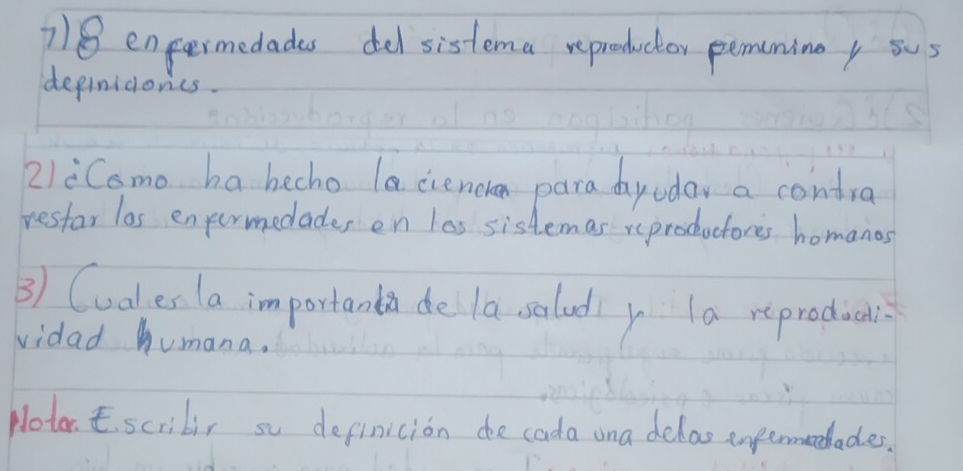 1) 8 enfermedades del sistema reproductor femenino y sus
definiciones.
2) ¿Como ha hecho la ciencia para ayudar a contra
restar las enfermedades en los sistemas reproductores homanos
3) Cual es la importancia de la salud y la reproducti-
vidad humana.
Nota. Escribir su definición de cada una delas enfermedades.